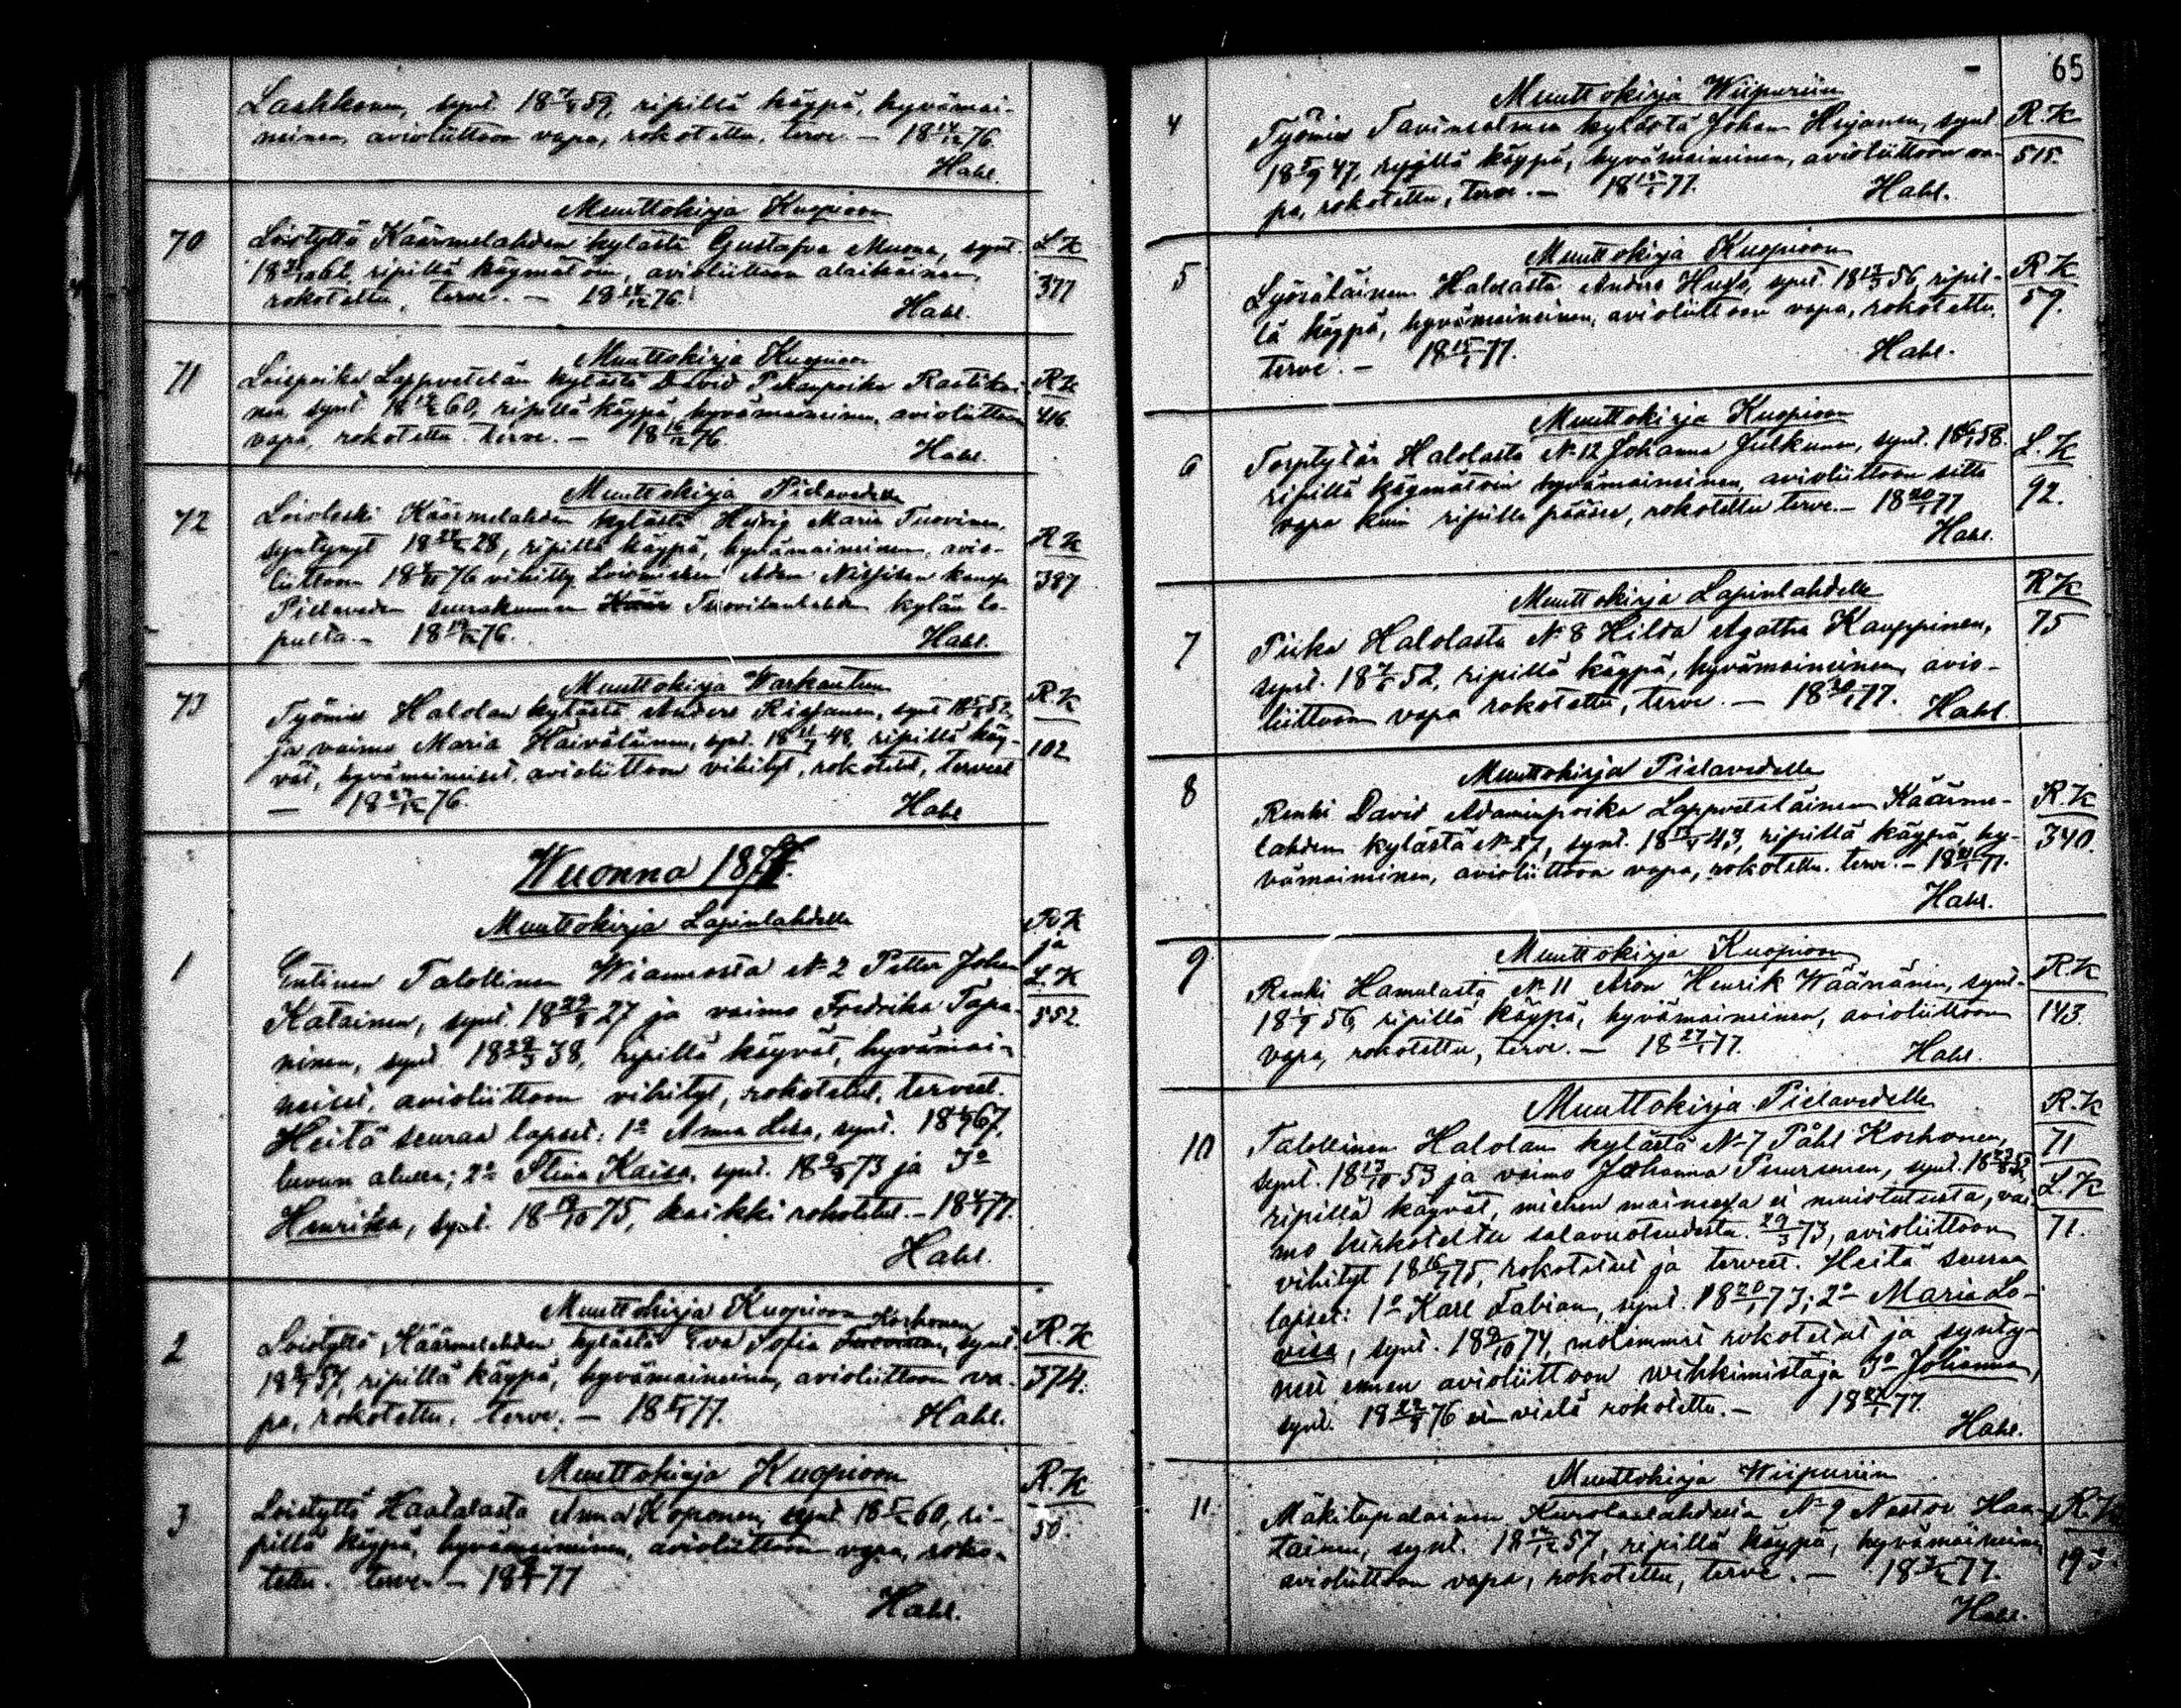 Laakkonen, synt. 18 59, ripillä käypä, hyvämai-
neinen, avioliittoon vapa, rokotettu, terve. — 18 14/12 76.
Hahl.
Muuttokirja Kuopioon
70 Loistyttö Käärmelahden kylästä Gustafva Muona, synt. L.K
18 62 ripillä käymätöin, avioliittoon alaikäinen, 377
rokotettu, terve. — 18 14/12 76.
Hahl.
Muuttokirja Kuopioon
71 Loispoika Lappvetelän kylästä David Pekanpoika Rautiai- R.K
nen synt. 18 60, ripillä käypä, hyvämaineinen, avioliittoon 416.
vapa, rokotettu. terve. — 18 16/12 76.
Hahl.
Muuttokirja Pielavedelle
72 Loisleski Käärmelahden kylästä Hedvig Maria Tuovinen, R.K
syntynyt 18 28, ripillä käypä, hyvämaineinen, avio- 387
liittoon 18 76 vihitty Loismiehen Adam Nissisen kanssa
Pielaveden seurakunnan Tuovilanlahden kylän lo-
pulta. — 18 19/12 76.
Hahl.
Muuttokirja Warkauteen
73 Työmies Halolan kylästä Anders Rissanen, synt. 18 52, R.K
ja vaimo Maria Häiväläinen, synt. 18 48, ripillä käy- 102
vät, hyvämaineiset, avioliittoon vihityt, rokotetut, terveet
— 18 27/12 76.
Hahl
Wuonna 1877.
Muuttokirja Lapinlahdelle
1 Entinen Talollinen Wiannosta N:o 2 Petter Johan R.K ja L.K
Katainen, synt. 18 29/8 27 ja vaimo Fredrika Tapa- 552.
ninen, synt. 18 29/3 38, ripillä käyvät, hyvämai-
neiset, avioliittoon vihityt, rokotetut, terveet.
Heitä seuraa lapset: 1:o Anna Lisa, synt. 18 67,
luvun alussa; 2:o Stina Kaisa, synt. 18 73 ja 3:o
Henrika, synt. 18 19/10 75, kaikki rokotetut. — 18 4/1 77.
Hahl.
Muuttokirja Kuopioon
Korhonen
2 Loistyttö Käärmelahden kylästä Eva Sofia Tuovinen, synt. R.K
18 57, ripillä käypä, hyvämaineinen, avioliittoon va- 374.
pa, rokotettu, terve. — 18 77.
Hahl.
Muuttokirja Kuopioon
3 Loistyttö Haatalasta Anna Koponen, synt 18 60, ri- R.K
pillä käypä, hyvämaineinen, avioliittoon vapa, roko- 50.
tettu. terve. — 18 77
Hahl.
65
Muuttokirja Wiipuriin
4 Työmies Tavinsalmen kylästä Johan Reijonen, synt. R.K
18 5/9 47, ripillä käypä, hyvämaineinen, avioliittoon va- 515.
pa, rokotettu, terve. — 18 15/1 77.
Hahl.
Muuttokirja Kuopioon
5 Syösäläinen Halolasta Anders Husso, synt. 18 56, ripil- R.K
lä käypä, hyvämaineinen, avioliittoon vapa, rokotettu, 59.
terve. — 18 15/1 77.
Hahl.
Muuttokirja Kuopioon
6 Torptytär Halolasta N:o 12 Johanna Julkunen, synt. 18 58. L.K
ripillä käymätöin hyvämaineinen, avioliittoon sitte 92.
vapa kuin ripille pääsee, rokotettu terve. — 18 20/1 77
Hahl.
Muuttokirja Lapinlahdelle
7 Piika Halolasta N:o 8 Hilda Agatha Kauppinen, R.K
synt. 18 52, ripillä käypä, hyvämaineinen, avio- 75
liittoon vapa rokotettu, terve. — 18 20/1 77.
Hahl.
Muuttokirja Pielavedelle
8 Renki David Adaminpoika Lappveteläinen Käärme- R.K
lahden kylästä N:o 27, synt. 18 43, ripillä käypä, hy- 340.
vämaineinen, avioliittoon vapa, rokotettu. terve. — 18 77.
Hahl.
Muuttokirja Kuopioon
9 Renki Hamulasta N:o 11 Aron Henrik Wäänänen, synt. R.K
18 56, ripillä käypä, hyvämaineinen, avioliittoon 143.
vapa, rokotettu, terve. — 18 27/1 77.
Hahl.
Muuttokirja Pielavedelle
10 Talollinen Halolan kylästä N:o 7 Påhl Korhonen, R.K 71
synt. 18 13/10 53 ja vaimo Johanna Puurunen, synt. 18
ripillä käyvät, miehen maineesta ei muistutusta, vai- L.K
mo kirkotettu salavuoteudesta 29/3 73, avioliittoon 71.
vihityt 18 75, rokotetut ja terveet. Heitä seuraa
lapset: 1:o Karl Fabian, synt. 18 20/1 73; 2:o Maria Lo-
visa, synt. 18 9/10 74, molemmat rokotetut ja synty-
neet ennen avioliittoon wihkimistä ja 3:o Johanna,
synt. 18 22/8 76 ei vielä rokotettu. — 18 27/1 77.
Hahl.
Muuttokirja Wiipuriin
11. Mäkitupalainen Kurolanlahdesta N:o 9 Nestor Haa- R.K
tainen, synt. 18 57, ripillä käypä, hyvämaineinen
avioliittoon vapa, rokotettu, terve. — 18 77.
Hahl.